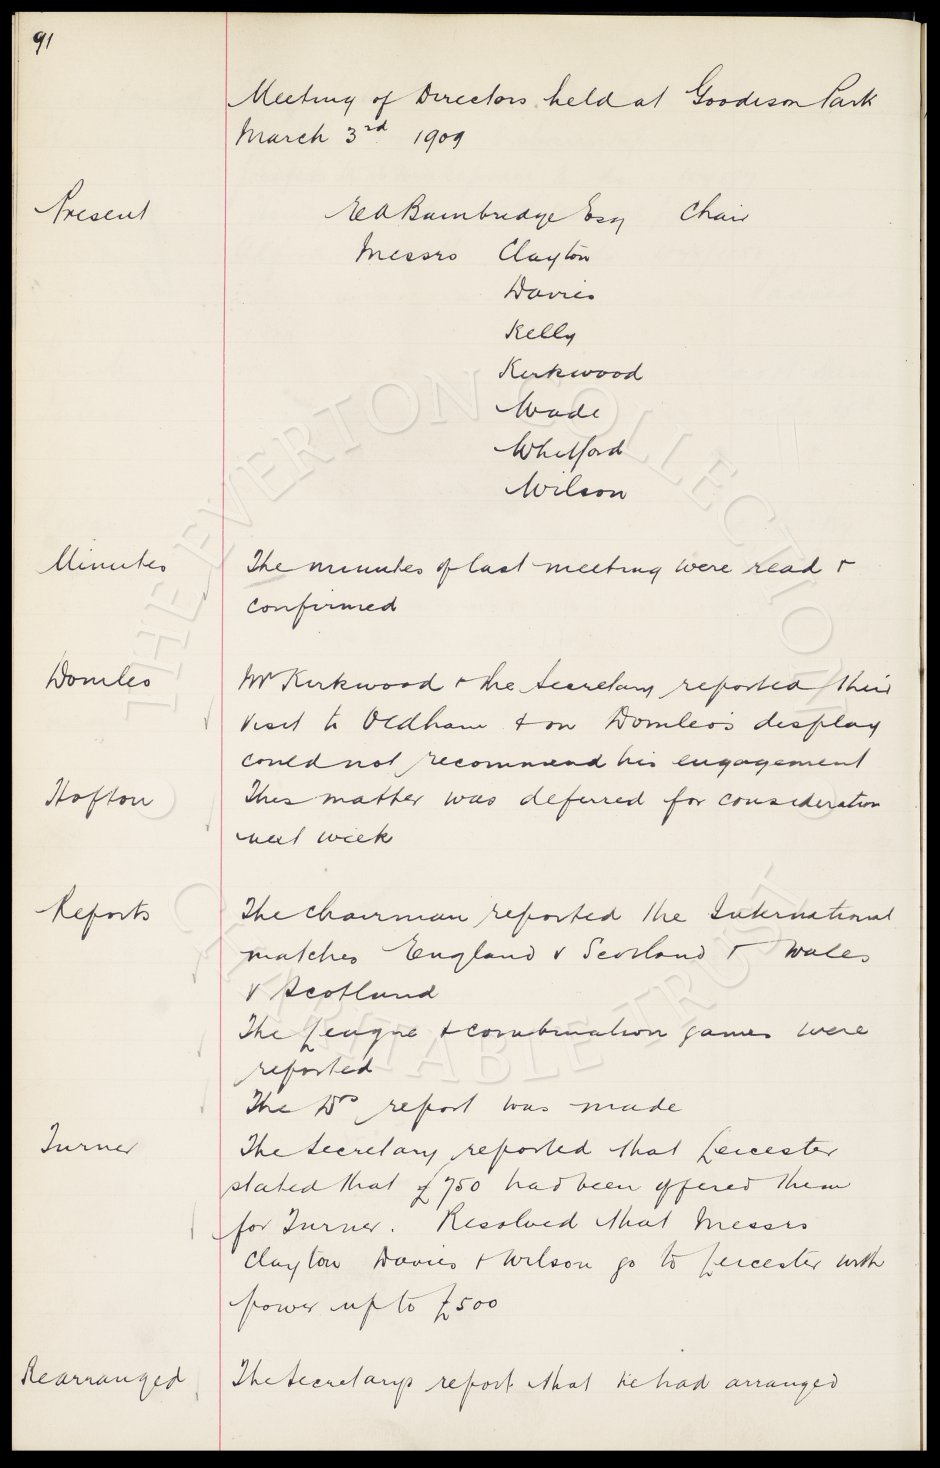 91
Meeting of Directors held at Goodison Park
March 3rd 1909
Present
E A Bainbridge Esq Chair
Messrs Clayton
Davies
Kelly
Kirkwood
Wade
Whitford
Wilson
Minutes
The minutes of last meeting were read +
confirmed
Domleo
Mr Kirkwood + the Secretary reported their
visit to Oldham + on Domleo's display
could not recommend his engagement
Hofton
This matter was deferred for consideration
next week
Reports
The Chairman reported the International
matches England v Scotland + Wales
v Scotland
The League + combination games were
reported
The Drs report was made
Turner
The Secretary reported that Leicester
stated that £750 had been offered them
for Turner. Resolved that Messrs
Clayton Davies + Wilson go to Leicester with
power up to £500
Rearranged
The Secretarys report that he had arranged
THE EVERTON COLLECTION
CHARITABLE TRUST